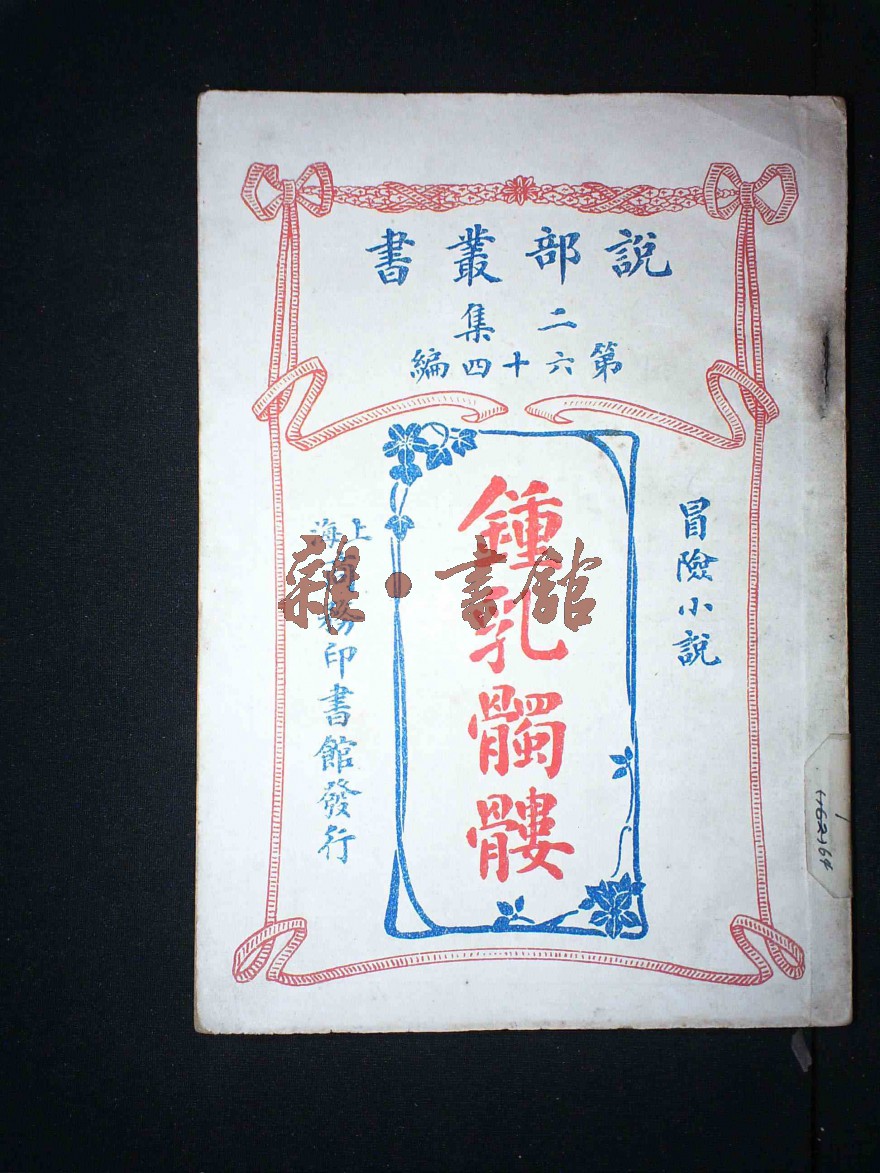 說部叢書
二集
第六十四編
冒險小說
鍾乳髑髏
上海
商務印書館發行
雜·書館